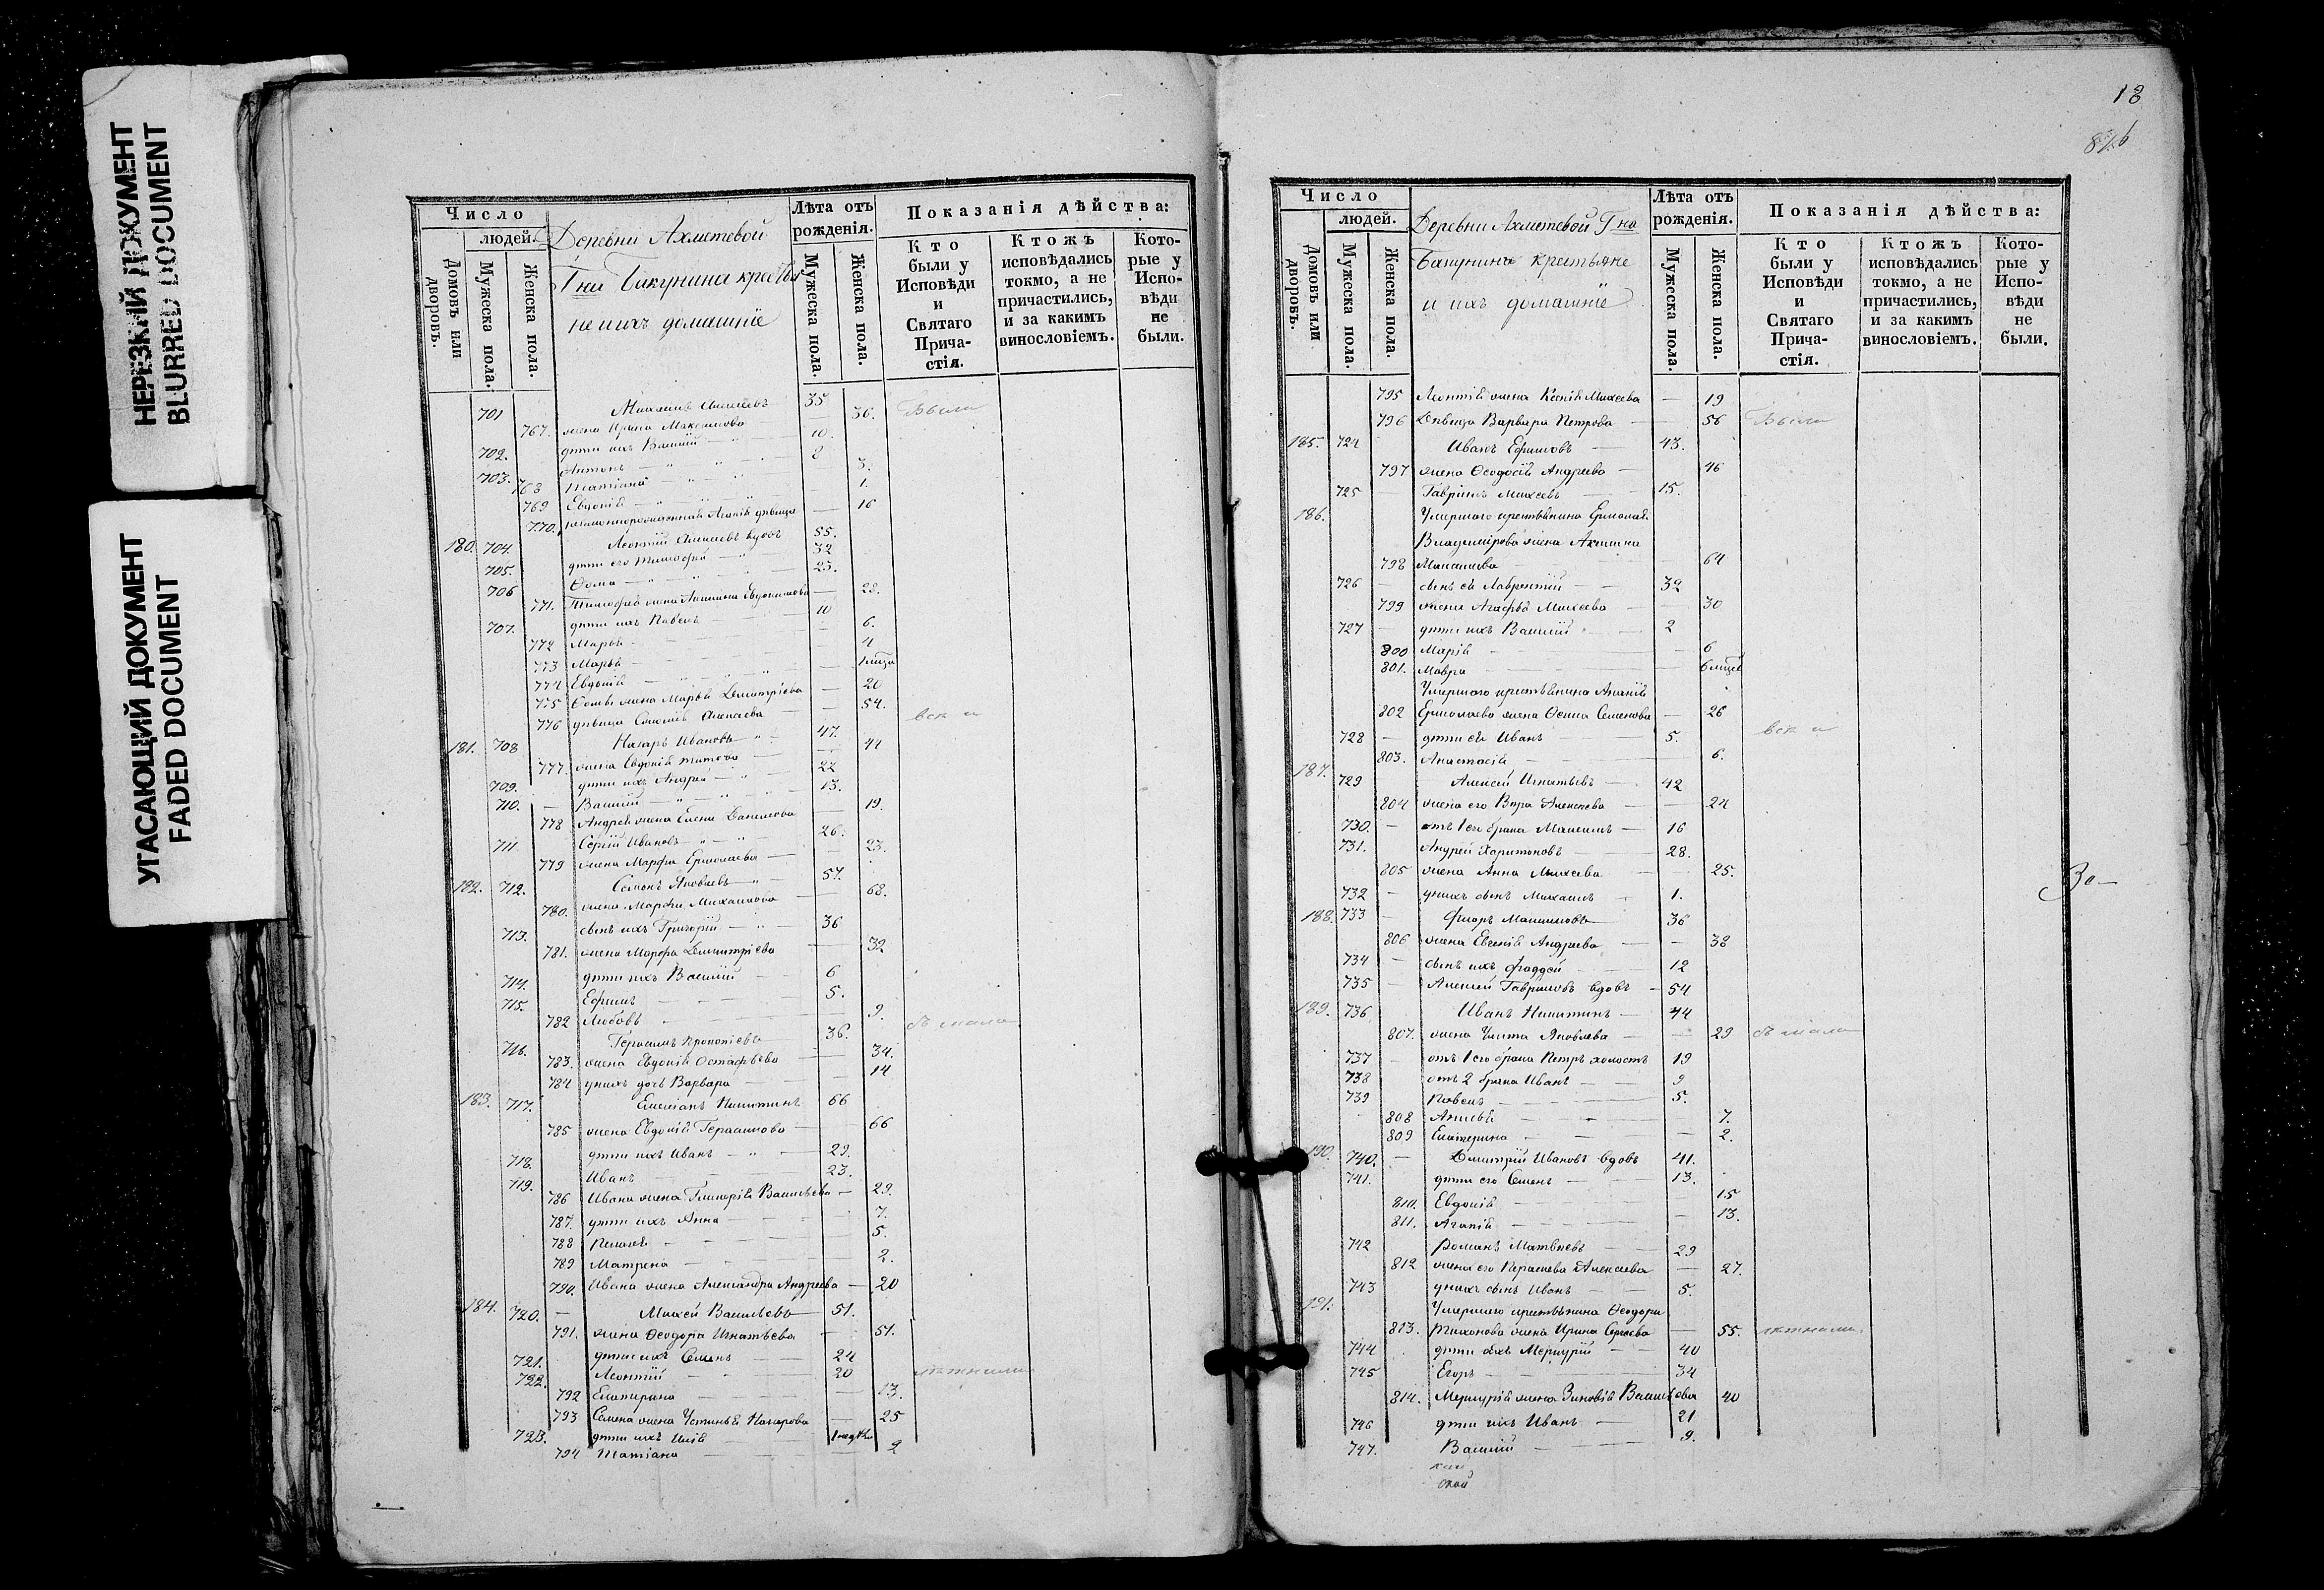 НЕРЕЗКИЙ ДОКУМЕНТ
BLURRED DOCUMENT
УГАСАЮЩИЙ ДОКУМЕНТ
FADED DOCUMENT
Число
людей.
Домовъ или дворовъ.
Мужеска пола.
Женска пола.
Деревни Ахметевой
Гна Бакунина крестья
не и ихъ домашніе
Лѣта отъ рожденія.
Мужеска пола.
Женска пола.
Показанія дѣйства:
Кто были у Исповѣди и Святаго Причастія.
Ктожъ исповѣдались токмо, а не причастились, и за какимъ винословіемъ.
Которые у Исповѣди не были.
701 35
767. жена Ирина Максимова 36. Были
702. дѣти ихъ Василій 10.
703. Антонъ 8
768 Татіана 3.
769 Евдокія 1.
770. дѣвица 16
180. 704. Леонтій Алексеевъ вдовъ 55.
705. дѣти его Тимофей 32
706 Ѳома 23.
771. Тимофея жена Евдокимова 28.
707. дѣти ихъ Павелъ 10
772 Марья 6.
773 Марья 4
774 Евдокія
775 Ѳомы жена Марья Димитріева 20
776 дѣвица Алексѣева 54.
181. 708 Назаръ Ивановъ 47.
777. жена Евдокія Титова 42
709. дѣти ихъ Андрей 22
710. Василій 13.
778 Андрея жена Елена Данилова 19.
711 Сергій Ивановъ 26.
779 жена Марфа Ермолаева 23.
182. 712. Семенъ Яковлевъ 57.
780. жена Марфа Михайлова 68.
713. сынъ ихъ Григорій 36
781. жена Марфа Димитріева 32
714. дѣти ихъ Василій 6
715. Ефимъ 5.
782 Любовь 9.
716. Герасимъ Прокопіевъ 36.
783. жена Евдокія Остафьева 34.
784 у нихъ дочь Варвара 14
183. 717. Емеліанъ Никитинъ 66
785 жена Евдокія Герасимова 66
718. дѣти ихъ Иванъ 29.
719. Иванъ 23.
786 Ивана жена Гликерія Васильева 29.
787. дѣти ихъ Анна 7.
788 Пелагея 5.
789 Матрена 2.
790. Ивана жена Александра Андреева 20
184. 720. Михей Васильевъ 51.
791. жена Ѳеодора Игнатьева 51.
721. дѣти ихъ Семенъ 24
722. Леонтій 20
792 Екатерина 13.
793 Семена жена Устинья Назарова 25
723. дѣти ихъ Илія
794 Татіана 2
18
Число
людей.
Домовъ или дворовъ.
Мужеска пола.
Женска пола.
Деревни Ахметевой Гна
Бакунина крестьяне
и ихъ домашніе
Лѣта отъ рожденія.
Мужеска пола.
Женска пола.
Показанія дѣйства:
Кто были у Исповѣди и Святаго Причастія.
Ктожъ исповѣдались токмо, а не причастились, и за какимъ винословіемъ.
Которые у Исповѣди не были.
795 Леонтія жена Ксенія Михеева 19
796 Дѣвица Варвара Петрова 56 Были
185. 724 Иванъ Ефимовъ 43.
797 жена Ѳеодосія Андреева 46
725 Гавріилъ Михеевъ 15.
186. Умершаго крестьянина Ермолая
Владимірова жена Акилина
798 64
726 сынъ ея Лаврентій 32
799 жена Агафья Михеева 30
727 дѣти ихъ Василій 2
800 Марія 6
801. Мавра
Умершаго крестьянина Ананія
802 Ермолаева жена Семенова 26
728 дѣти ея Иванъ 5.
803. Анастасія 6.
187. 729 Алексей Игнатьевъ 42
804 жена его Вѣра Алексеева 24
730. отъ 1 его брака Максимъ 16
731. Андрей Харитоновъ 28.
805 жена Анна Михеева 25.
732 у нихъ сынъ Михаилъ 1.
188. 733 Максимовъ 36
806 жена Евгенія Андреева 38
734 сынъ ихъ Фаддей 12
735 Алексей Гавриловъ вдовъ 54
189. 736 Иванъ Никитинъ 44
807. жена Улита Яковлева 29
737 отъ 1 его брака Петръ холостъ 19
738 отъ 2 брака Иванъ 9
739 Павелъ 5.
808 7.
809 Екатерина 2.
190. 740. Димитрій Ивановъ вдовъ 41.
741. дѣти его Семенъ 13.
810. Евдокія 15
811. Агапія 13.
742 Романъ Матвеевъ 29
812 жена его Алексеева 27.
743 у нихъ сынъ Иванъ 5.
191. Умершаго крестьянина Ѳеодора
813. Тихонова жена Ирина Сергеева 55.
744 дѣти ихъ Меркурій 40
745 Егоръ 34
814. Меркурія жена Зиновія Васильева 40
746 дѣти ихъ Иванъ 21
747. Василій 9.